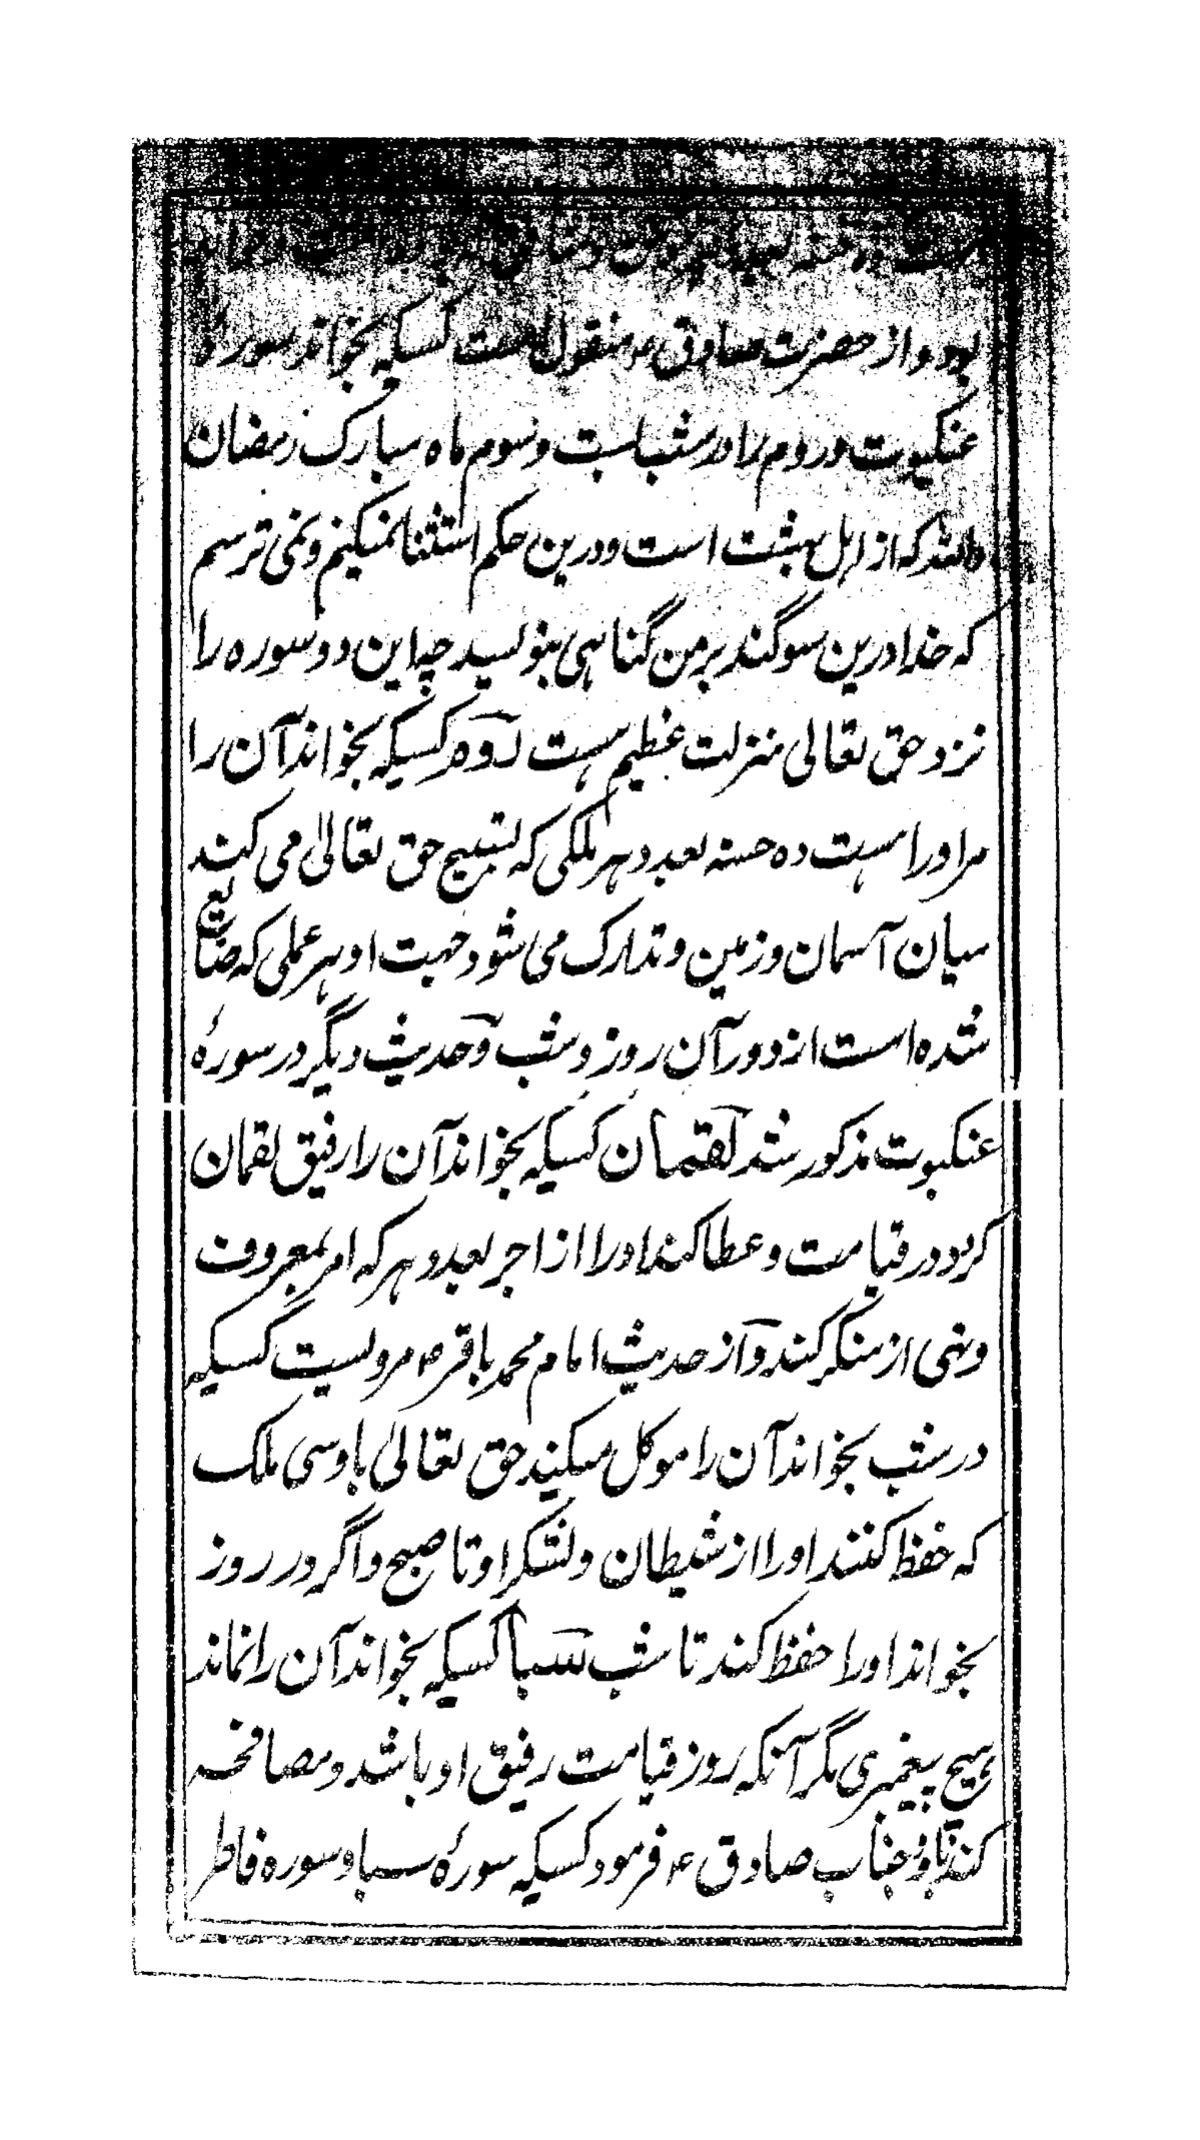 است ده حسنه بعدد
بود و از حضرت صادق ع منقول است کسیکه بخواند سورۀ
عنکبوت و روم را در شب بست و سوم ماه مبارک رمضان
والله که از اهل بهشت است و درین حکم استثنا نمیکنم و نمی ترسم
که خدا درین سوگند بر من گناهی بنویسد چه این دو سوره را
نزد حق تعالی منزلت عظیم هست روم کسیکه بخواند آن را
مر او را هست ده حسنه بعدد هر ملکی که تسبیح حق تعالیٰ می کند
میان آسمان و زمین و تدارک می شود جهت او هر عملی که ضایع
شده است از دور آن روز و شب و حدیث دیگر در سورۀ
عنکبوت مذکور شد لقمان کسیکه بخواند آن را رفیق لقمان
گردد در قیامت و عطا کند او را از اجر بعدد هر که امر بمعروف
و نهی از منکر کند و از حدیث امام محمد باقر ع مرویست کسیکه
در شب بخواند آن را موکل میکند حق تعالیٰ باو سی ملک
که حفظ کنند او را از شیطان و لشکر او تا صبح و اگر در روز
بخواند او را حفظ کند تا شب سبا کسیکه بخواند آن را نماند
هیچ پیغمبری مگر آنکه روز قیامت رفیق او باشد و مصافحه
کند باو و جناب صادق ع فرمود کسیکه سورۀ سبا و سوره فاطر